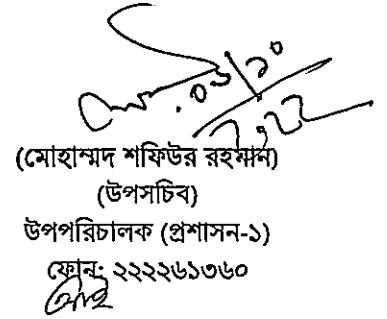 ০১/১০
২০২২
(মোহাম্মদ শফিউর রহমান)
(উপসচিব)
উপপরিচালক (প্রশাসন-১)
ফোন: ২২২২৬১৩৬০